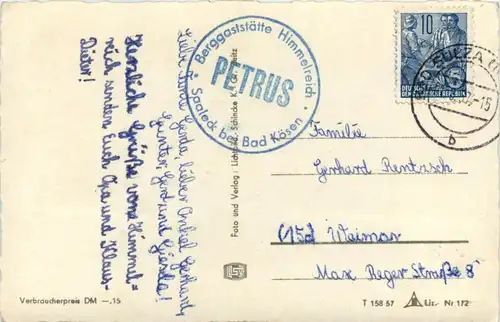 Liebe Tante Gerda, lieber Onkel Gerhard,
Günter, Gerd und Gisela!
Herzliche Grüße vom Himmel-
reich senden Euch Opa und Klaus-
Dieter!
Berggaststätte Himmelreich
PETRUS
Saaleck bei Bad Kösen
Foto und Verlag: Lichtbild. Schincke K. G., Zeitz
10
DEUTSCHE
DEMOKRATISCHE REPUBLIK
SULZA
-15
b
Familie
Gerhard Rentzsch
(15a) Weimar
Max Reger Straße 8
Verbraucherpreis DM —,15
T 158 57
Liz.- Nr 172